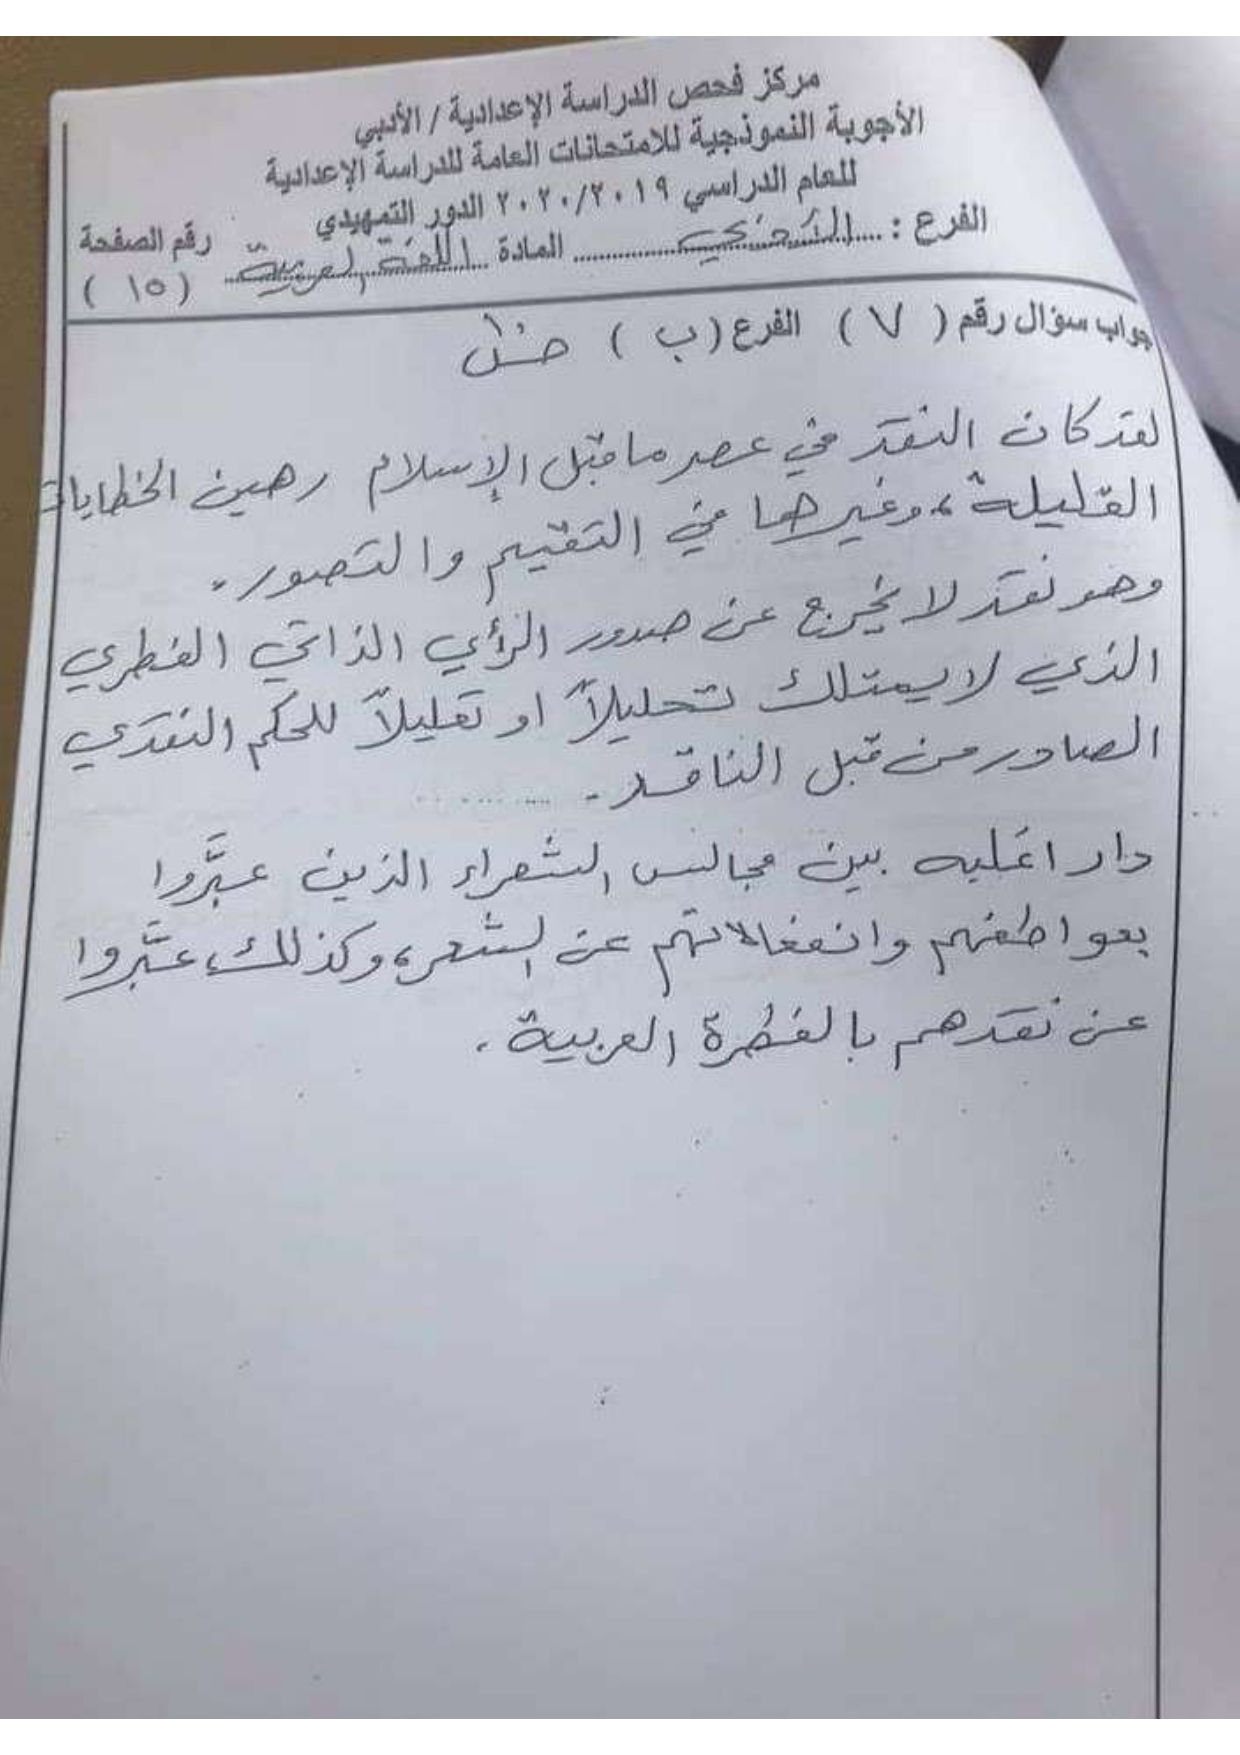 مركز فحص الدراسة الإعدادية / الأدبي
الأجوبة النموذجية للامتحانات العامة للدراسة الإعدادية
للعام الدراسي ٢٠٢٠/٢٠١٩ الدور التمهيدي
الفرع : المادة اللغة العربية رقم الصفحة
( ١٥ )
جواب سؤال رقم ( ٧ ) الفرع ( ب )
لقد كان النقد في عصر ما قبل الإسلام رهين الخطابات
القليلة، وغيرها في التقييم والتصور.
وهو نقد لا يخرج عن صدور الرأي الذاتي الفطري
الذي لا يمتلك تحليلاً او تعليلاً للحكم النقدي
الصادر من قبل الناقد.
دار اغلبه بين مجالس الشعراء الذين عبَّروا
بعواطفهم وانفعالاتهم عن الشعر، وكذلك، عبَّروا
عن نقدهم بالفطرة العربية.